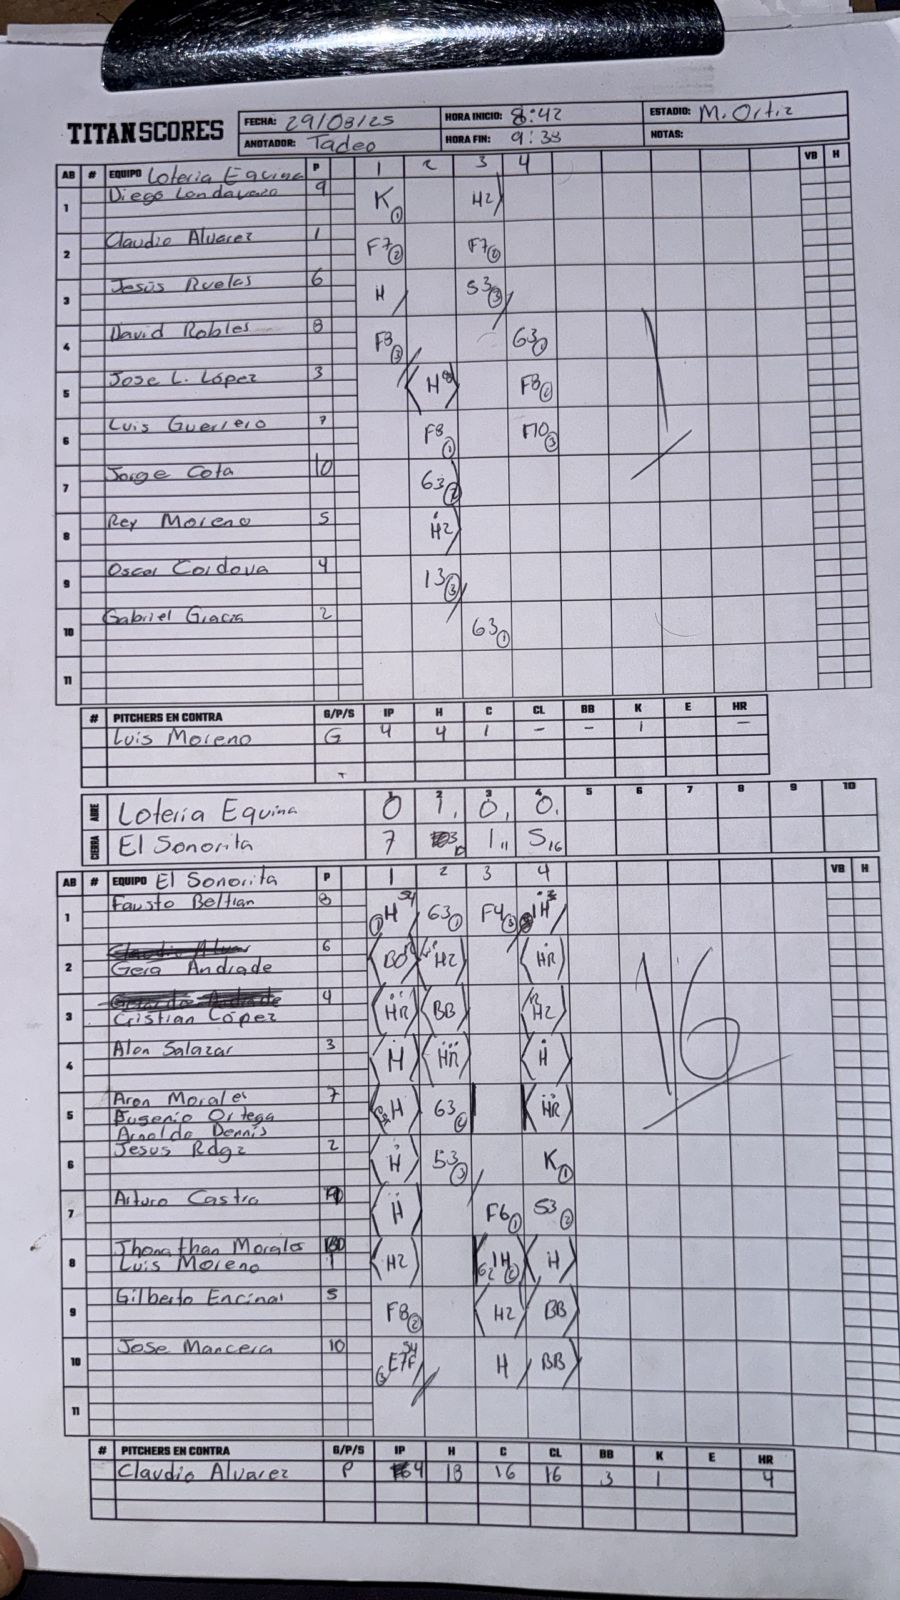 TITAN SCORES
FECHA: 29/08/25 HORA INICIO: 8:42 ESTADIO: M. Ortiz
ANOTADOR: Tadeo HORA FIN: 9:38 NOTAS:
AB # EQUIPO Loteria Equina P 1 2 3 4 VB H
1 Diego Londavazo 9 K① H2
2 Claudio Alvarez 1 F7② F7②
3 Jesús Ruelas 6 H 53③
4 David Robles 8 F8③ 63①
5 Jose L. López 3 H F8②
6 Luis Guerrero 7 F8① F10③
7 Jorge Cota 10 63②
8 Rey Moreno 5 H2
9 Oscar Cordova 4 13③
10 Gabriel Gracia 2 63①
11
1
# PITCHERS EN CONTRA G/P/S IP H C CL BB K E HR
Luis Moreno G 4 4 1 - - 1 -
1 2 3 4 5 6 7 8 9 10
ABRE Loteria Equina 0 1 0 0
CIERRA El Sonorita 7 3 10 1 11 5 16
AB # EQUIPO El Sonorita P 1 2 3 4 VB H
1 Fausto Beltran 8 ①H 54 63① F4③ 1H
2 Gera Andrade 6 H2 HR
3 Cristian López 4 HR BB H2
4 Alan Salazar 3 H HR H
5 Aron Morales 7 H 63② HR
Eugenio Ortega
Arnoldo Dennis
6 Jesus Rdgz 2 H 53③ K①
7 Arturo Castro H F6① 53②
8 Jhonathan Morales H2 62 1H② H
Luis Moreno 1
9 Gilberto Encinas 5 F8② H2 BB
10 Jose Mancera 10 ③ 54 H BB
11
16
# PITCHERS EN CONTRA G/P/S IP H C CL BB K E HR
Claudio Alvarez P 4 18 16 16 3 1 4